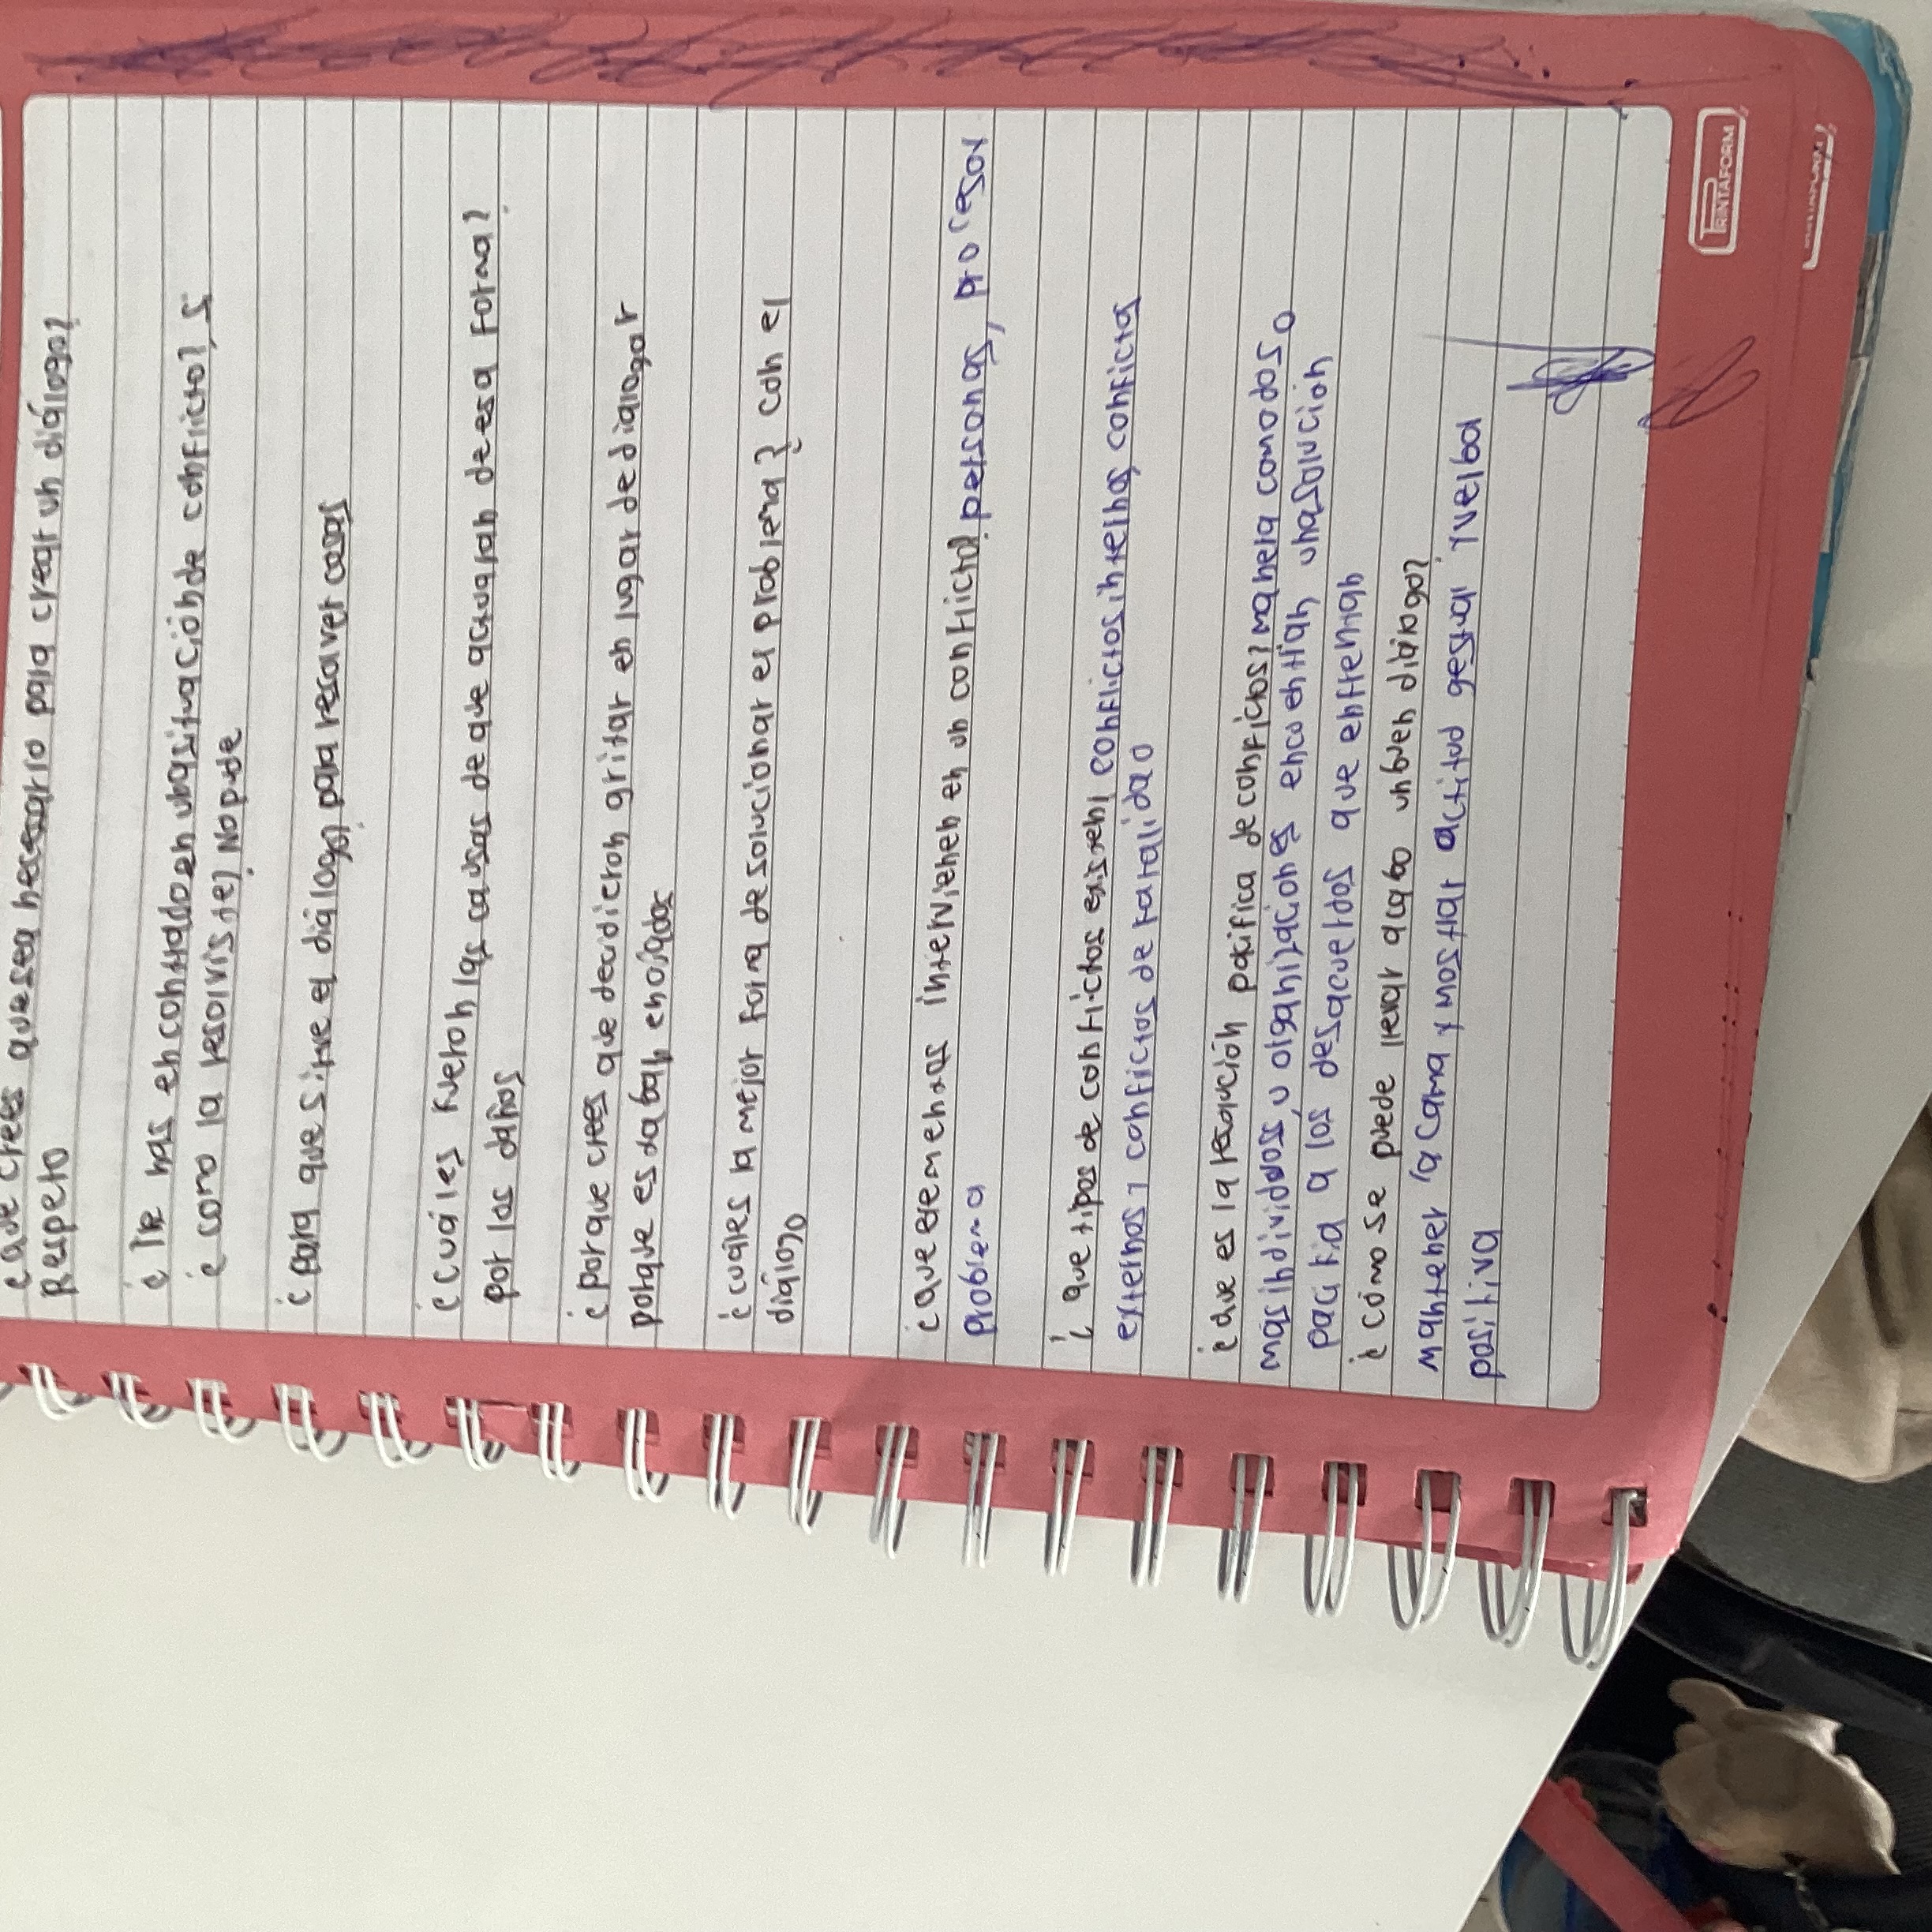 ¿que crees que sea necesario para crear un diálogo?
Respeto
¿Te has encontrado en una situación de conflicto?, S
¿como la resolviste? No pude
¿para que sirve el diálogo? para resolver cosas
¿cuáles fueron las causas de que actuaran de esa forma?
por los daños
¿porque crees que decidieron gritar en lugar de dialogar
porque estaban enojados
¿cuáles la mejor forma de solucionar el problema? con el
diálogo
¿que elementos intervienen en un conflicto? personas, proceso y
problema
¿que tipos de conflictos existen? conflictos internos conflictos
externos y conflictos de
¿que es la resolución pacífica de conflictos? manera como dos o
mas individuos, u organizaciones encuentran una solución
pacífica a los desacuerdos que enfrentan
¿cómo se puede llevar acabo un buen diálogo?
Mantener la calma y mostrar actitud gestual y verbal
positiva
PRINTAFORM